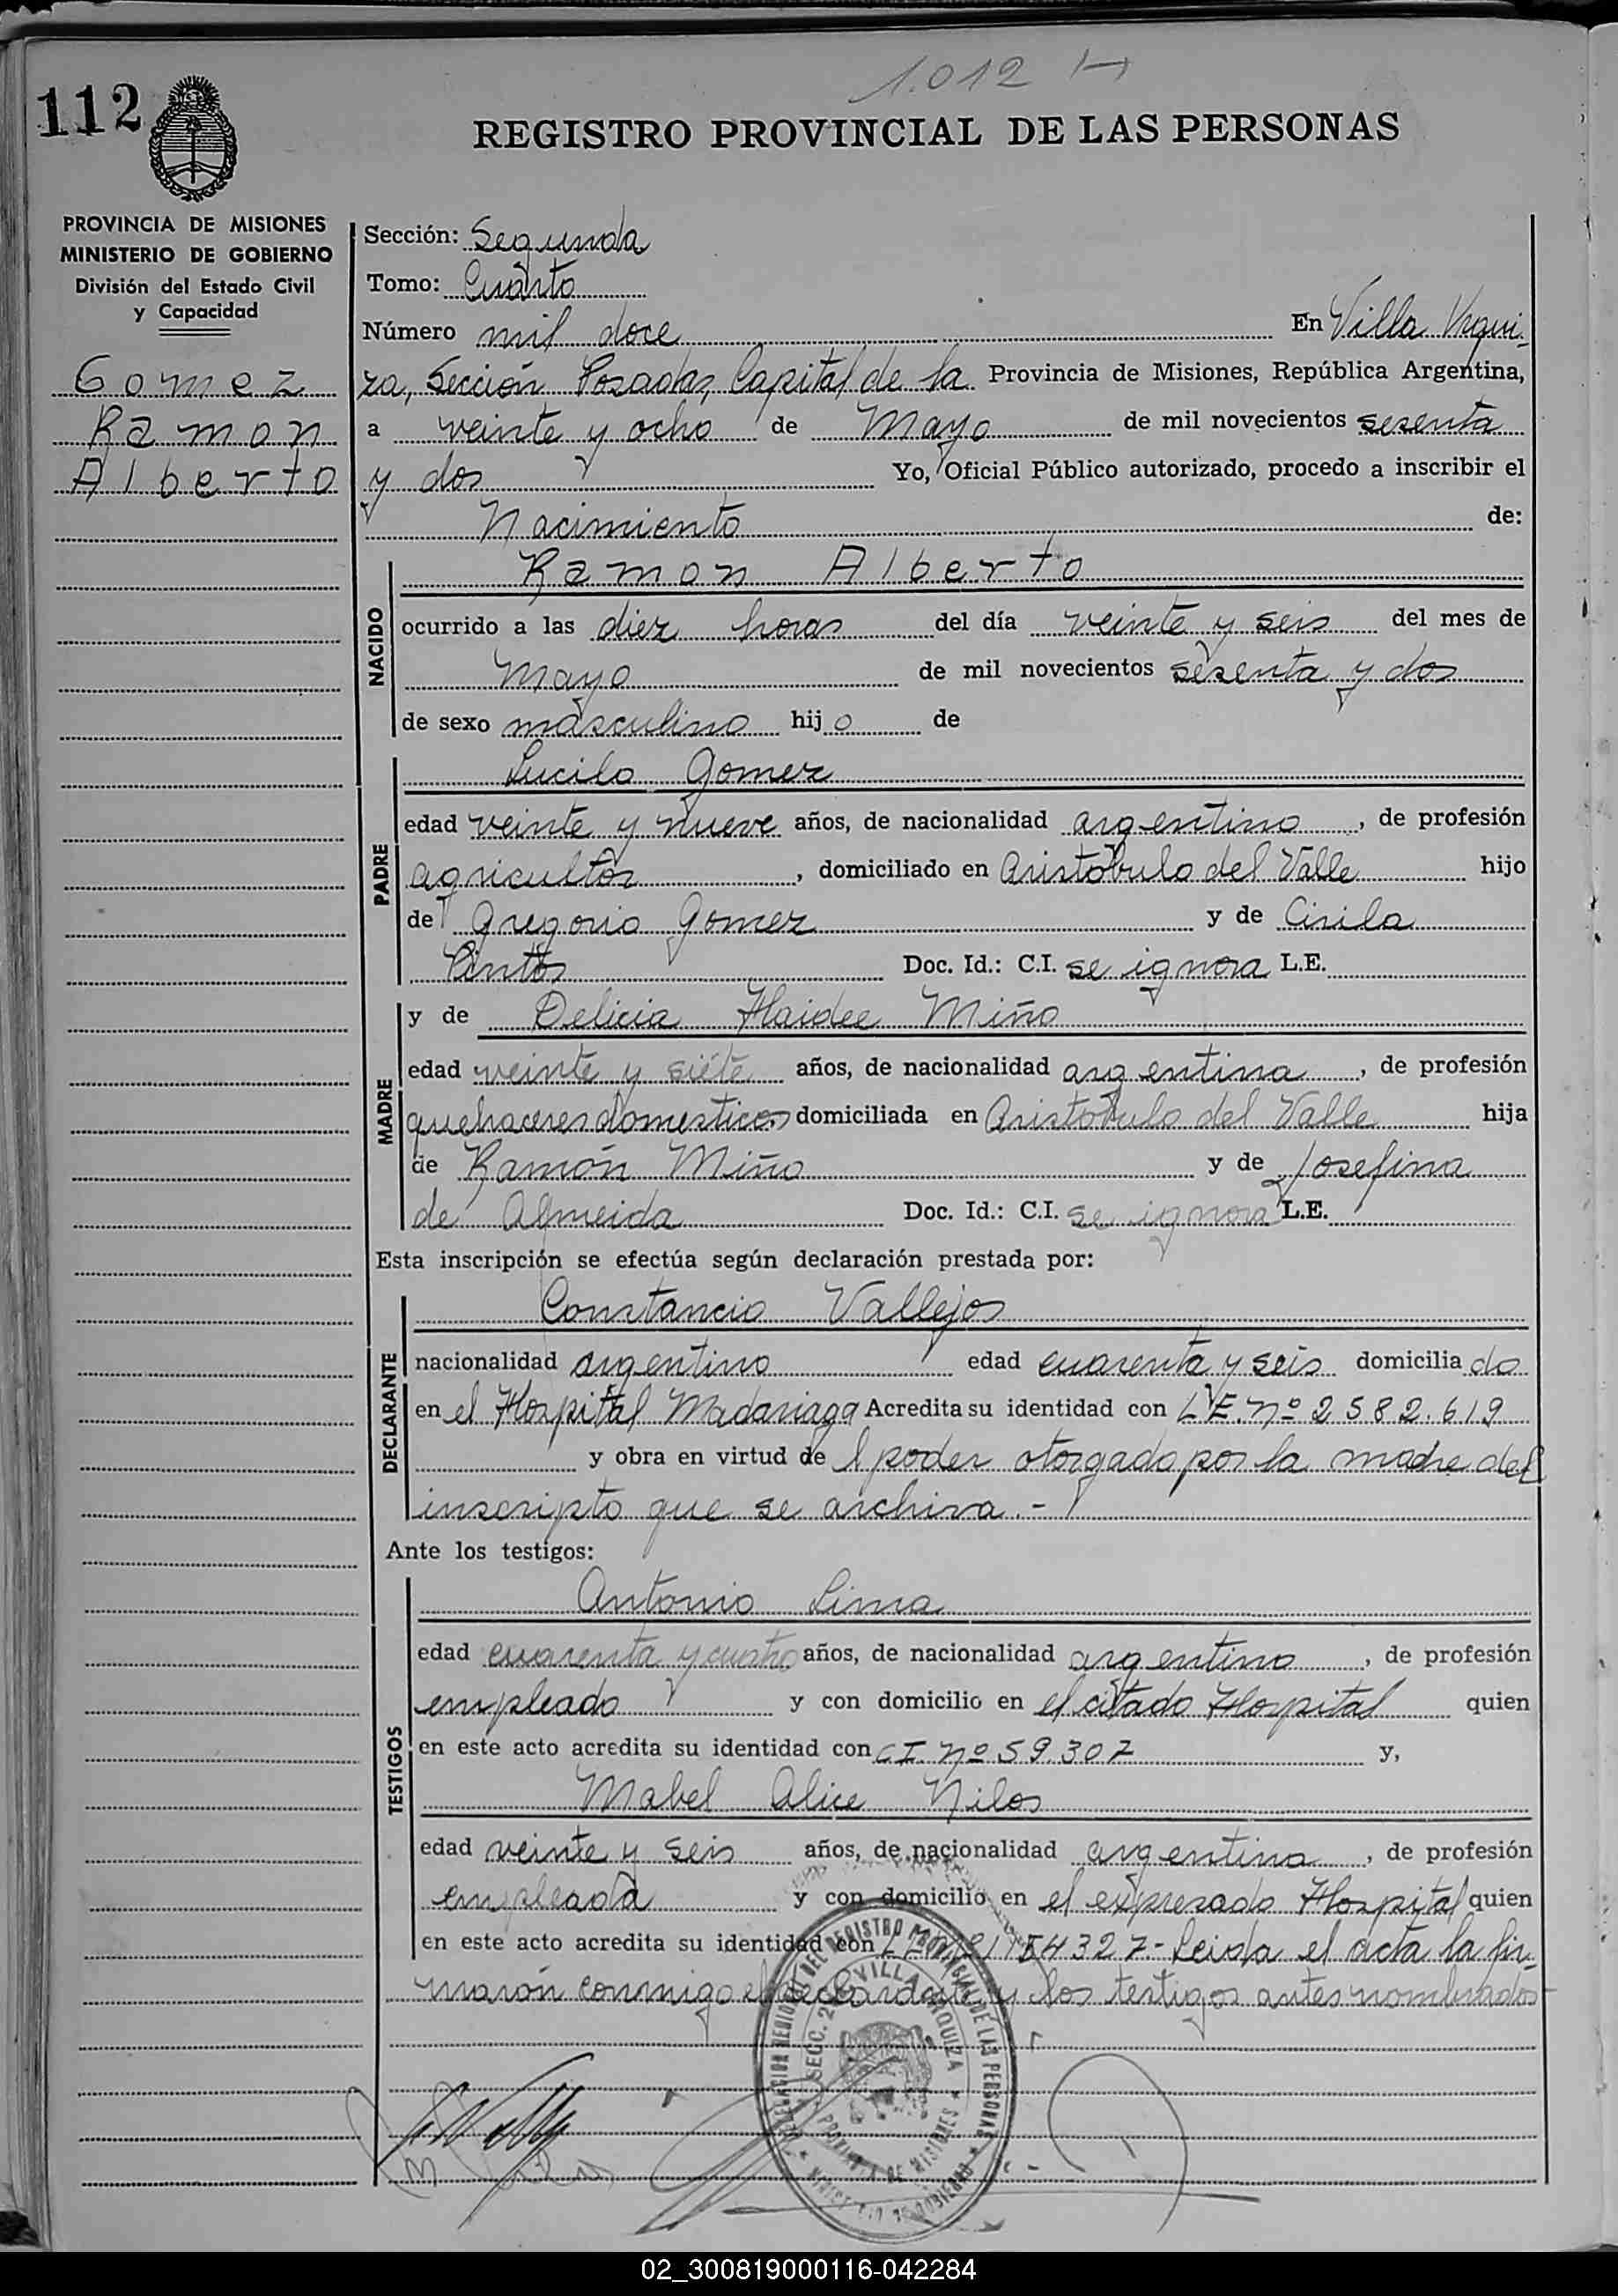 1.012 H
112
REGISTRO PROVINCIAL DE LAS PERSONAS
PROVINCIA DE MISIONES
MINISTERIO DE GOBIERNO
División del Estado Civil
y Capacidad
Gomez
Ramon
Alberto
Sección: Segunda
Tomo: Cuarto
Número mil doce En Villa Urqui-
za, Sección Posadas, Capital de la Provincia de Misiones, República Argentina,
a veinte y ocho de Mayo de mil novecientos sesenta
y dos Yo, Oficial Público autorizado, procedo a inscribir el
Nacimiento de:
NACIDO
Ramon Alberto
ocurrido a las diez horas del día veinte y seis del mes de
Mayo de mil novecientos sesenta y dos
de sexo masculino hijo de
PADRE
Lucilo Gomez
edad veinte y nueve años, de nacionalidad argentino, de profesión
agricultor, domiciliado en Aristóbulo del Valle hijo
de Gregorio Gomez y de Cirila
Pintos Doc. Id.: C.I. se ignora L.E.
MADRE
y de Delicia Haidee Miño
edad veinte y siete años, de nacionalidad argentina, de profesión
quehaceres domesticos domiciliada en Aristobulo del Valle hija
de Ramón Miño y de Josefina
de Almeida Doc. Id.: C.I. se ignora L.E.
Esta inscripción se efectúa según declaración prestada por:
DECLARANTE
Constancio Vallejos
nacionalidad argentino edad cuarenta y seis domiciliado
en el Hospital Madariaga Acredita su identidad con L.E. nº 2582.619
y obra en virtud del poder otorgado por la madre del
inscripto que se archiva.-
Ante los testigos:
TESTIGOS
Antonio Lima
edad cuarenta y cuatro años, de nacionalidad argentino, de profesión
empleado y con domicilio en el citado Hospital quien
en este acto acredita su identidad con C.I. nº 59.307 y,
Mabel Alice Nilos
edad veinte y seis años, de nacionalidad argentina, de profesión
empleada y con domicilio en el expresado Hospital quien
en este acto acredita su identidad con 4327- Leida el acta la fir-
maron conmigo el declarante y los testigos antes nombrados-
DELEGACION REGIONAL DEL REGISTRO PROVINCIAL DE LAS PERSONAS
SECC. 2ª VILLA URQUIZA
PROVINCIA DE MISIONES
MINISTERIO DE GOBIERNO
02_300819000116-042284